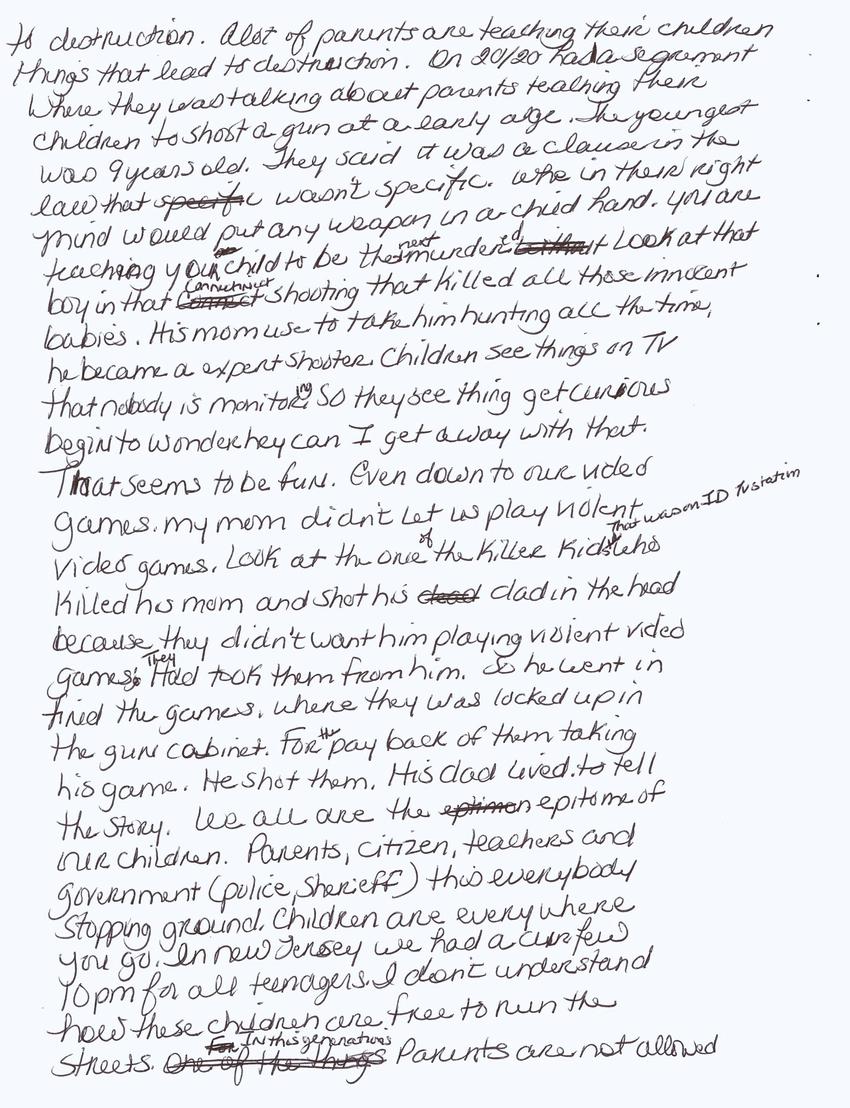 to destruction. Alot of parents are teaching their children
things that lead to destruction. On 20/20 had a segrement
where they was talking about parents teaching their
children to shoot a gun at a early age. The youngest
was 9 years old. They said it was a clause in the
law that specific wasn't specific. Who in their right
mind would put any weapon in a child hand. You are
teaching your child to be the next murdered Look at that
boy in that Connecticut Connect shooting that killed all those innocent
babies. His mom use to take him hunting all the time,
he became a expert shooter. Children see things on TV
that nobody is monitoring. So they see thing get curious
begin to wonder hey can I get away with that.
That seems to be fun. Even down to our video
games. My mom didn't let us play violent
video games. Look at the one of the Killer Kids That was on ID tv station who
killed his mom and shot his dead dad in the head
because they didn't want him playing violent video
games. They Had took them from him. So he went in
fined the games. where they was locked up in
the gun cabinet. For the pay back of them taking
his game. He shot them. His dad lived. to tell
the story. We all are the eptimon epitome of
our children. Parents, citizen, teachers and
government (police, Sherieff) this everybody
stopping ground. Children are everywhere
you go. In new Jersey we had a curfew
10pm for all teenagers. I don't understand
how these children are free to run the
streets. One of the things For In this generations Parents are not allowed